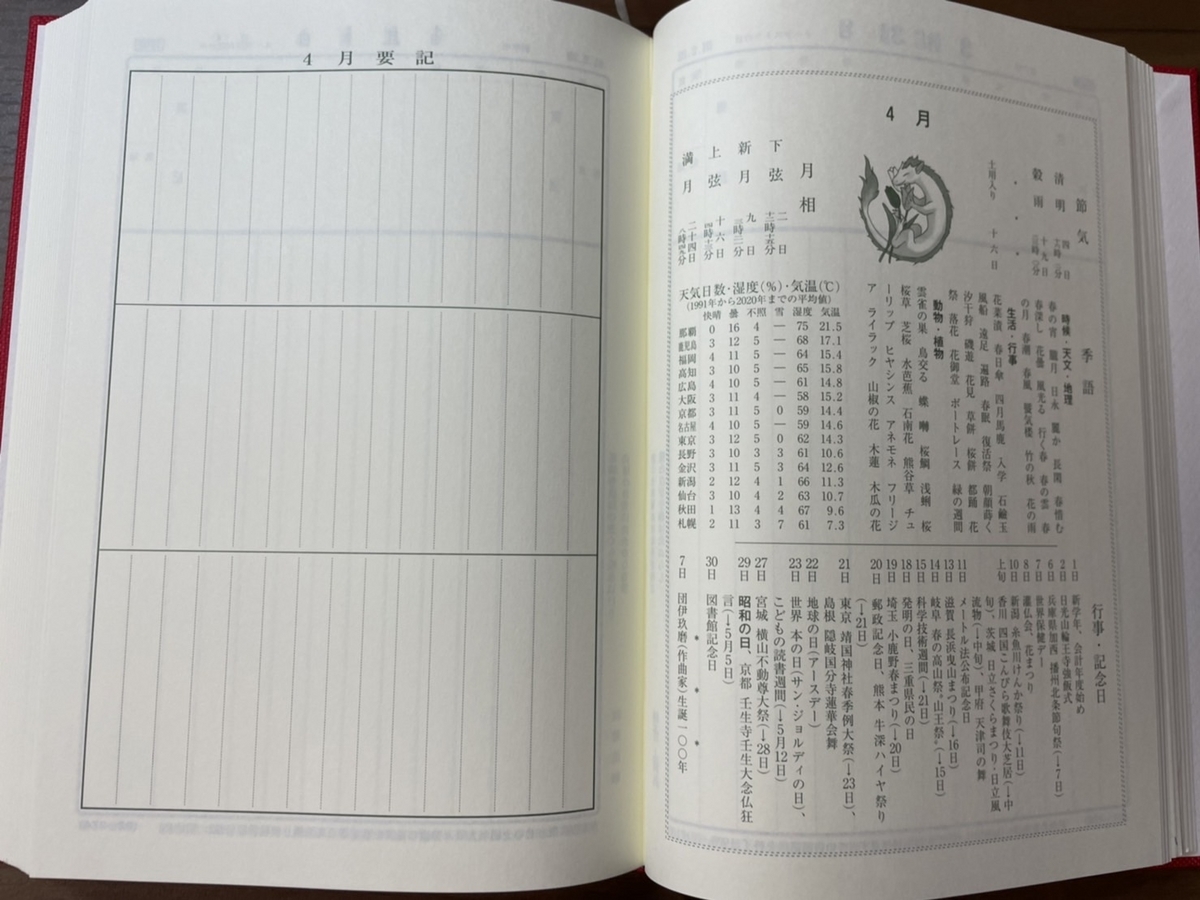 4月要記
4月
節気
清明 四日
穀雨 十九日
土用入り 十六日
月相
下弦 二日 十二時十五分
新月 九日 三時二一分
上弦 十六日 四時十三分
満月 二十四日 八時四九分
季語
時候・天文・地理
春の宵 朧月 日永 麗か 長閑 春惜む
春深し 花曇 風光る 行く春 春の雲 春
の月 春潮 春風 蜃気楼 竹の秋 花の雨
生活・行事
花菜漬 春日傘 四月馬鹿 入学 石鹸玉
風船 遠足 遍路 春眠 復活祭 朝顔蒔く
汐干狩 磯遊 花見 草餅 桜餅 都踊 花
祭 落花 花御堂 ボートレース 緑の週間
動物・植物
雲雀の巣 鳥交る 蝶 囀 桜鯛 浅蜊 桜
桜草 芝桜 水芭蕉 石南花 熊谷草 チュ
ーリップ ヒヤシンス アネモネ フリージ
ア ライラック 山椒の花 木蓮 木瓜の花
天気日数・湿度(%)・気温(℃)
(1991年から2020年までの平均値)
快晴 曇 不照 雪 湿度 気温
那覇 0 16 4 — 75 21.5
鹿児島 3 12 5 — 68 17.1
福岡 4 11 5 — 64 15.4
高知 3 10 5 — 65 15.8
広島 4 10 5 — 61 14.8
大阪 3 11 4 — 58 15.2
京都 3 11 5 0 59 14.4
名古屋 4 10 5 — 59 14.6
東京 3 12 5 0 62 14.3
長野 3 10 3 3 61 10.6
金沢 3 11 5 3 64 12.6
新潟 2 12 4 1 66 11.3
仙台 3 10 4 2 63 10.7
秋田 1 13 4 4 67 9.6
札幌 2 11 3 7 61 7.3
行事・記念日
1日 新学年、会計年度始め
2日 日光山輪王寺強飯式
6日 兵庫県加西 播州北条節句祭(→7日)
7日 世界保健デー
8日 灌仏会、花まつり
10日 新潟 糸魚川けんか祭り(→11日)
上旬 香川 四国こんぴら歌舞伎大芝居(→中
旬)、茨城 日立さくらまつり・日立風
流物(→中旬)、甲府 天津司の舞
11日 メートル法公布記念日
13日 滋賀 長浜曳山まつり(→16日)
14日 岐阜 春の高山祭。山王祭。(→15日)
15日 科学技術週間(→21日)
18日 発明の日、三重県民の日
19日 埼玉 小鹿野春まつり(→20日)
20日 郵政記念日、熊本 牛深ハイヤ祭り
(→21日)
21日 東京 靖国神社春季例大祭(→23日)、
島根 隠岐国分寺蓮華会舞
22日 地球の日(アースデー)
23日 世界 本の日(サン・ジョルディの日)、
こどもの読書週間(→5月12日)
27日 宮城 横山不動尊大祭(→28日)
29日 昭和の日、京都 壬生寺壬生大念仏狂
言(→5月5日)
30日 図書館記念日
* * *
7日 団伊玖磨(作曲家)生誕一〇〇年